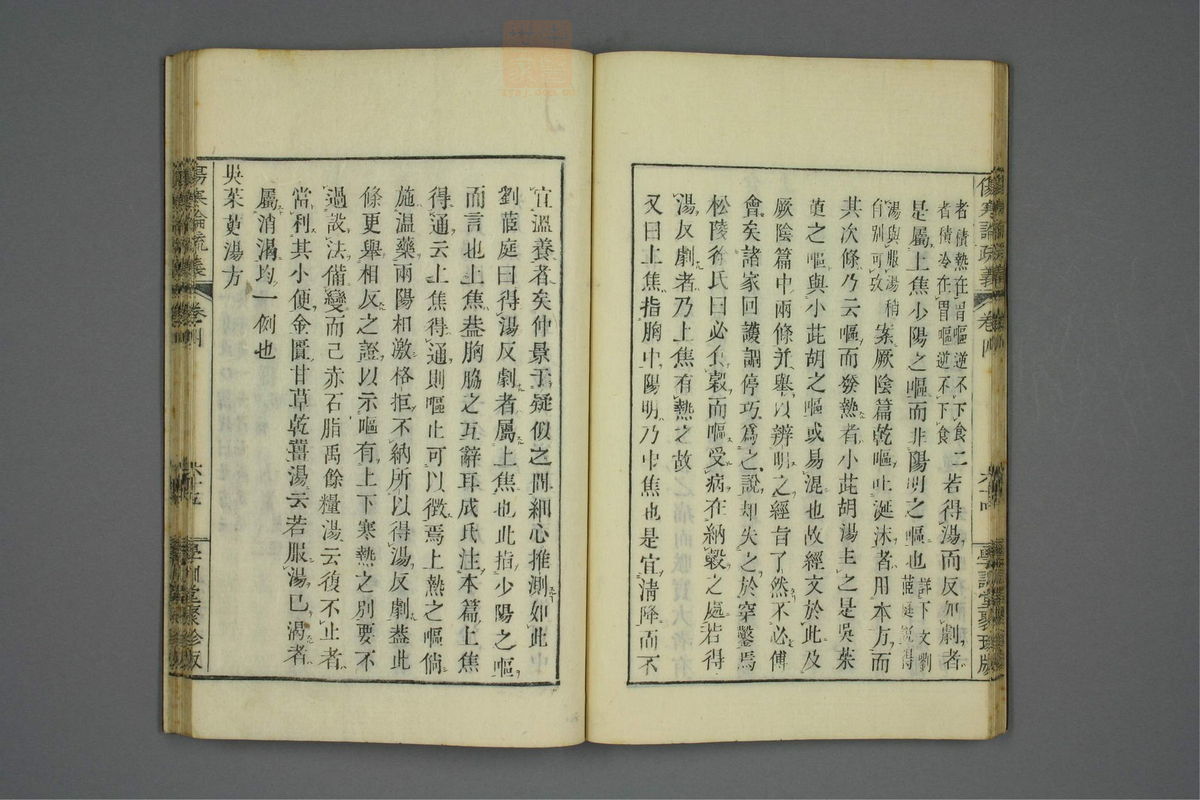 者積熱在胃嘔逆不下食
者積冷在胃嘔逆不下食
二若得湯而反如劇者
是屬上焦少陽之嘔而非陽明之嘔也
詳下文劉
茝庭說得
湯與服湯稍
自別可攷
案厥陰篇乾嘔吐涎沫者用本方而
其次條乃云嘔而發熱者小茈胡湯主之是吳茱
萸之嘔與小茈胡之嘔或易混也故經文於此及
厥陰篇中兩條并舉以辨明之經旨了然不必傅
會矣諸家回護調停巧爲之說却失之於穿鑿焉
松陵徐氏曰必食穀而嘔受病在納穀之處若得
湯反劇者乃上焦有熱之故
又曰上焦指胸中陽明乃中焦也是宜清降而不
傷寒論疏義
卷四
六十四
學訓堂聚珍版
宜溫養者矣仲景于疑似之間細心推測如此
劉茝庭曰得湯反劇者屬上焦也此指少陽之嘔
而言也上焦葢胸脇之互辭耳成氏注本篇上焦
得通云上焦得通則嘔止可以徵焉上熱之嘔倘
施溫藥兩陽相激格拒不納所以得湯反劇葢此
條更舉相反之證以示嘔有上下寒熱之別要不
過設法備變而已赤石脂禹餘糧湯云復不止者
當利其小便金匱甘草乾薑湯云若服湯已渴者
屬消渴均一例也
吳茱萸湯方
傷寒論疏義
卷四
六十五
學訓堂聚珍版